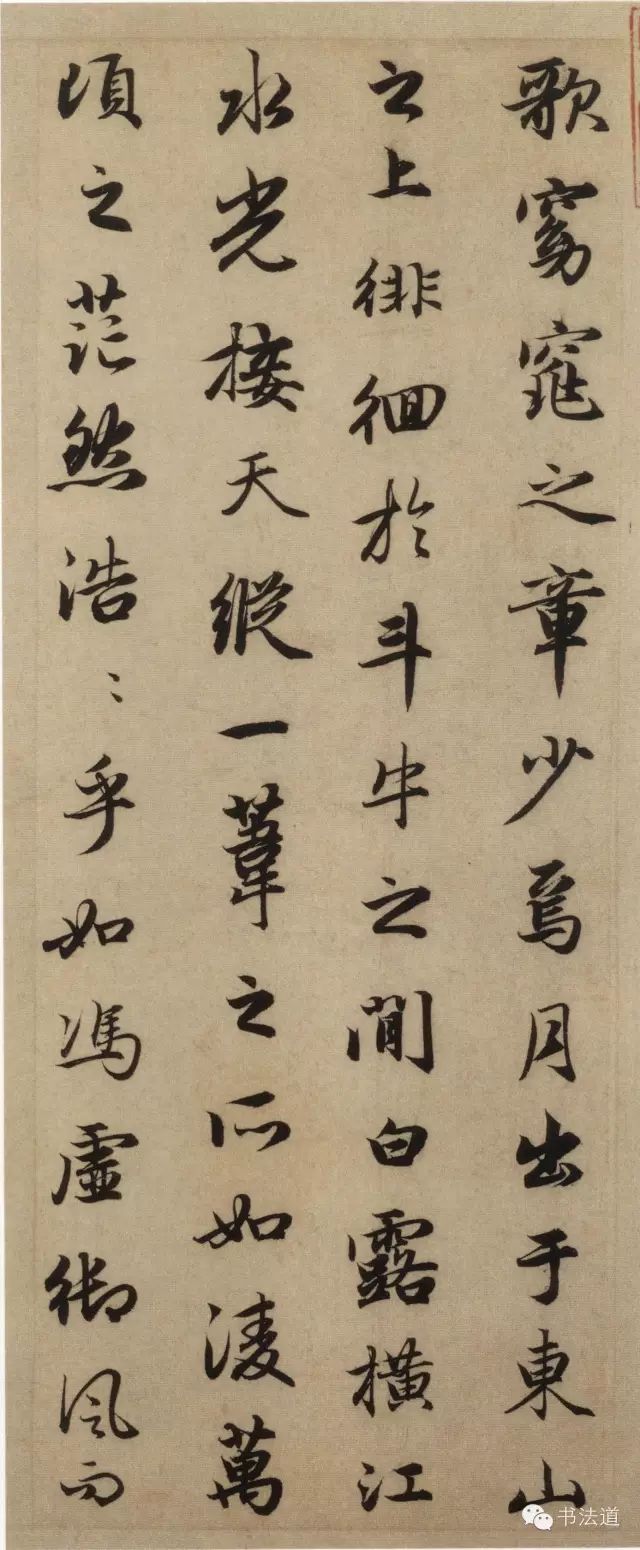 歌窈窕之章少焉月出于東山
之上徘徊於斗牛之間白露橫江
水光接天縱一葦之所如凌萬
頃之茫然浩〻乎如馮虛御風而
书法道